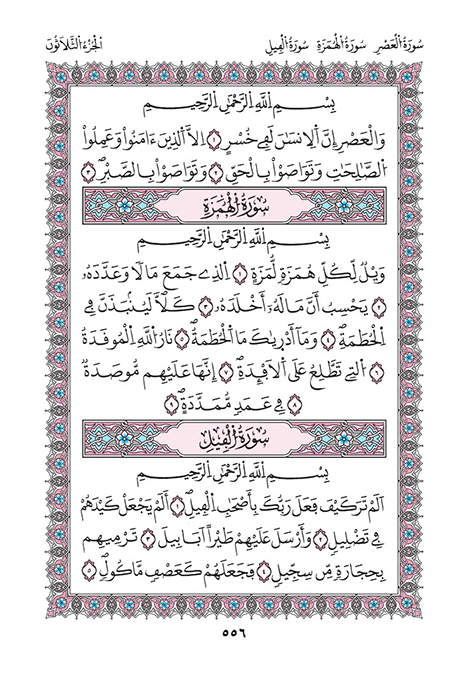 سُورَةُ الْعَصْرِ سُورَةُ الْهُمَزَةِ سُورَةُ الْفِيلِ الْجُزْءُ الثَّلَاثُونَ
بِسْمِ اللَّهِ الرَّحْمَٰنِ الرَّحِيمِ
وَالْعَصْرِ إِنَّ اَلِانسَٰنَ لَفِي خُسْرٍ ١ اِلَّا اَلذِينَ ءَامَنُواْ وَعَمِلُواْ
الصَّٰلِحَٰتِ وَتَوَاصَوْاْ بِالْحَقِّ ٢ وَتَوَاصَوْاْ بِالصَّبْرِ ٣
سُورَةُ الْهُمَزَةِ
بِسْمِ اللَّهِ الرَّحْمَٰنِ الرَّحِيمِ
وَيْلٌ لِّكُلِّ هُمَزَةٍ لُّمَزَةٍ ١ اِلذِي جَمَعَ مَالًا وَعَدَّدَهُۥ
٢ يَحْسِبُ أَنَّ مَالَهُۥٓ أَخْلَدَهُۥ ٣ كَلَّا لَيُنۢبَذَنَّ فِي
الْحُطَمَةِ ٤ وَمَآ أَدْرِيٰكَ مَا اَلْحُطَمَةُ ٥ نَارُ اللَّهِ الْمُوقَدَةُ
٦ اُلتِي تَطَّلِعُ عَلَى اَلَافْـِٕدَةِ ٧ إِنَّهَا عَلَيْهِم مُّوصَدَةٌ
٨ فِي عَمَدٍ مُّمَدَّدَةٍ ٩
سُورَةُ الْفِيلِ
بِسْمِ اللَّهِ الرَّحْمَٰنِ الرَّحِيمِ
أَلَمْ تَرَ كَيْفَ فَعَلَ رَبُّكَ بِأَصْحَٰبِ الْفِيلِ ١ أَلَمْ يَجْعَلْ كَيْدَهُمْ
فِي تَضْلِيلٍ ٢ وَأَرْسَلَ عَلَيْهِمْ طَيْرًا اَبَابِيلَ ٣ تَرْمِيهِم
بِحِجَارَةٍ مِّن سِجِّيلٍ ٤ فَجَعَلَهُمْ كَعَصْفٍ مَّاكُولٍ ٥
٥٥٦